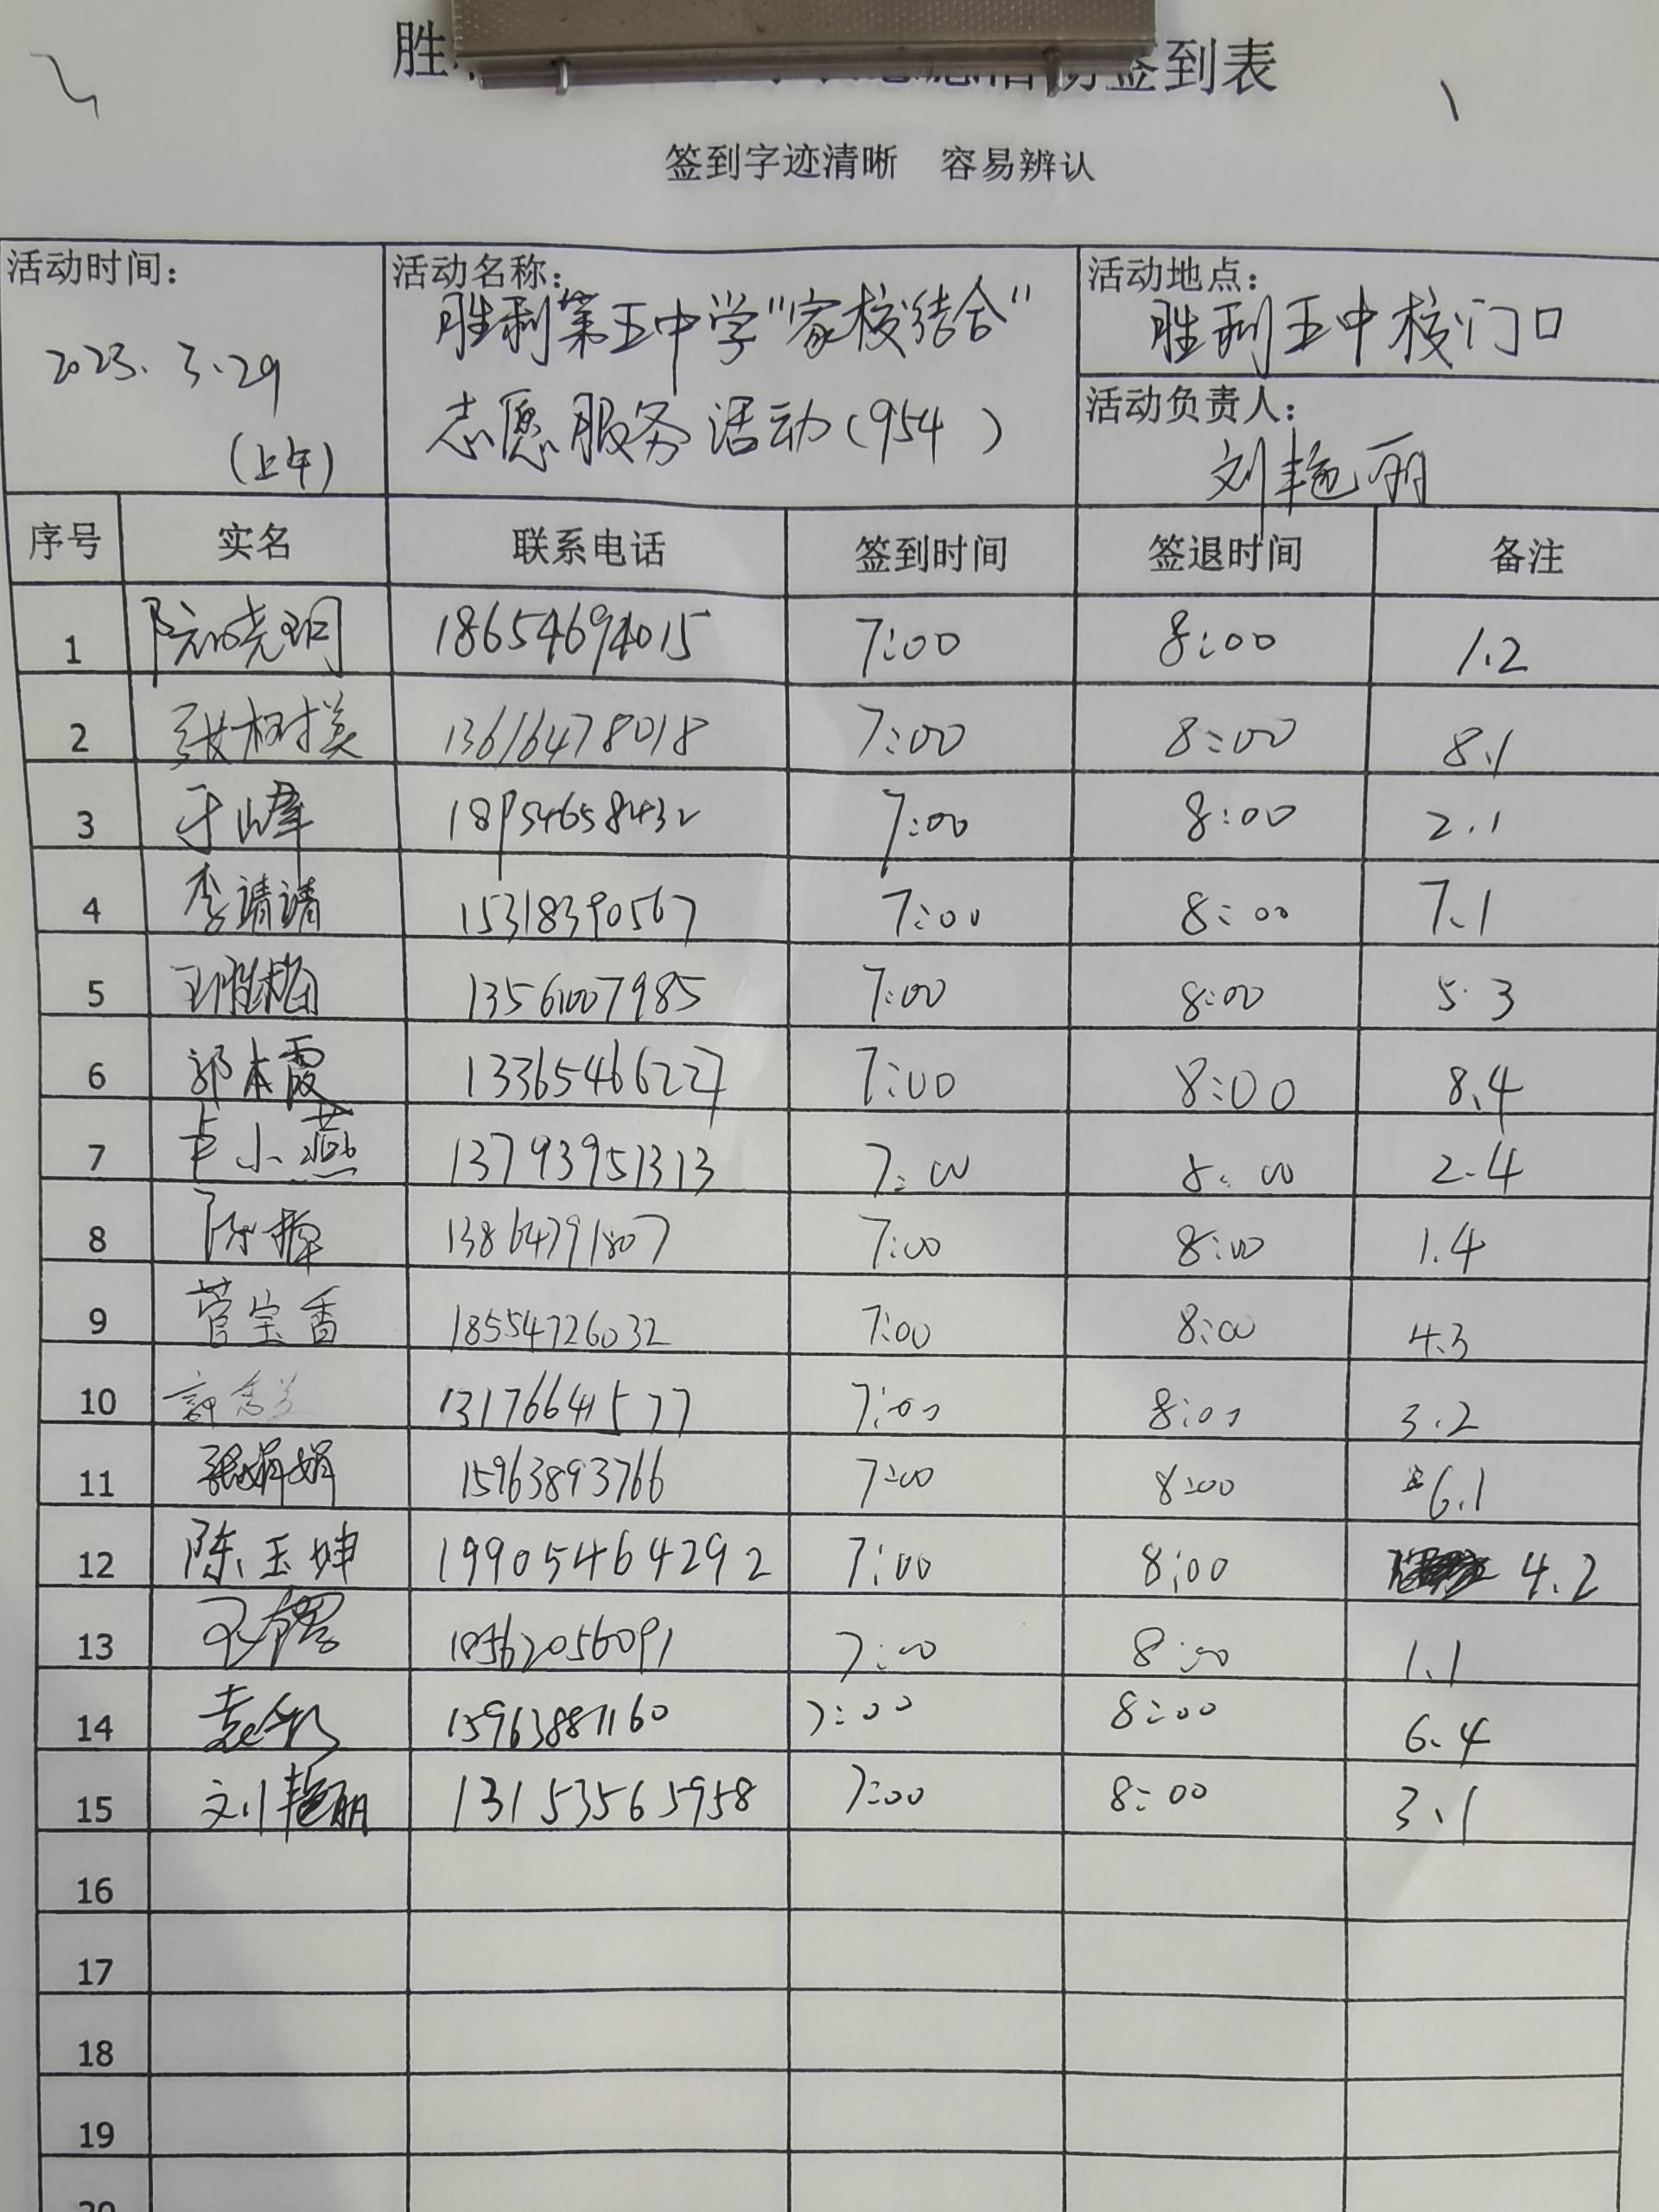 胜 签到表
签到字迹清晰 容易辨认
活动时间: 2023. 3.29 (上午)
活动名称: 胜利第五中学"家校结合"
志愿服务活动(954 )
活动地点: 胜利五中校门口
活动负责人: 刘艳丽
序号 实名 联系电话 签到时间 签退时间 备注
1 18654694015 7:00 8:00 1.2
2 张树美 13616478018 7:00 8:00 8.1
3 于峰 18954658432 7:00 8:00 2.1
4 李靖靖 15318390567 7:00 8:00 7.1
5 13561007985 7:00 8:00 5.3
6 郭本霞 13365466227 7:00 8:00 8.4
7 卢小燕 13793951313 7:00 8:00 2.4
8 13864791807 7:00 8:00 1.4
9 菅宝香 18554726032 7:00 8:00 4.3
10 13176641577 7:00 8:00 3.2
11 张娟娟 15963893766 7:00 8:00 6.1
12 陈玉坤 19905464292 7:00 8:00 4.2
13 18562056091 7:00 8:00 1.1
14 15963887160 7:00 8:00 6.4
15 刘艳丽 13153565958 7:00 8:00 3.1
16
17
18
19
20